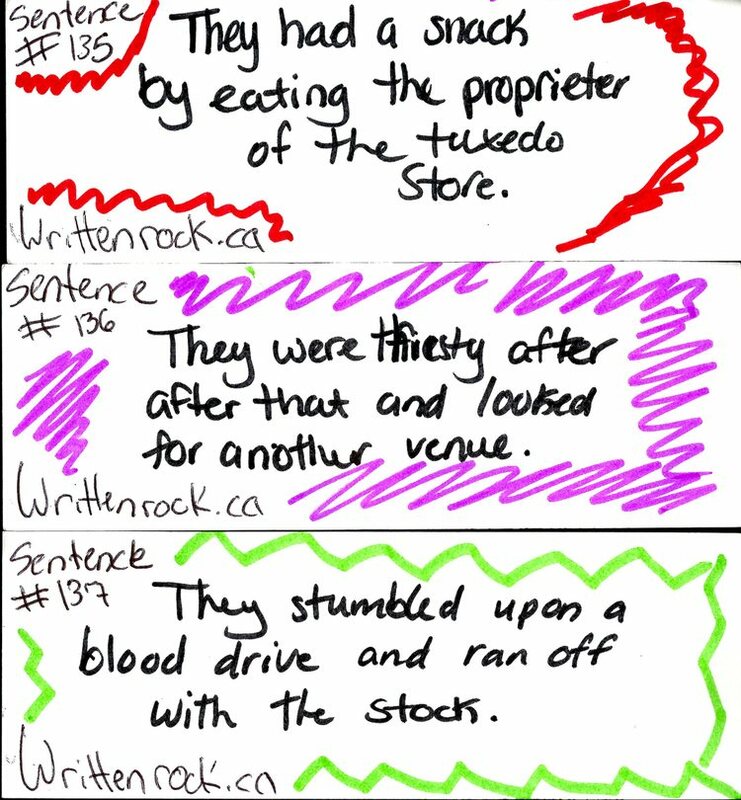 Sentence
# 135
They had a snack
by eating the proprieter
of the tuxedo
Store.
Writtenrock.ca
Sentence
# 136
They were thirsty after
after that and looked
for another venue.
Writtenrock.ca
Sentence
# 137
They stumbled upon a
blood drive and ran off
with the stock.
Writtenrock.ca